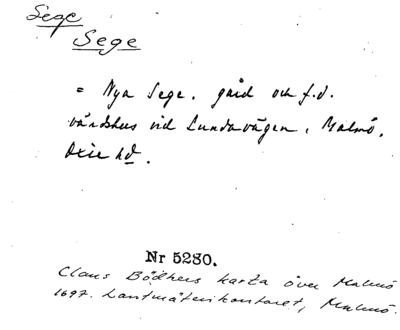 Sege
Sege
= Nya Sege. gård och f.d.
värdshus vid Lundavägen, Malmö.
Oxie hd.
Nr 5280.
Claus Bödkers karta över Malmö
1697. Lantmäterikontoret, Malmö.